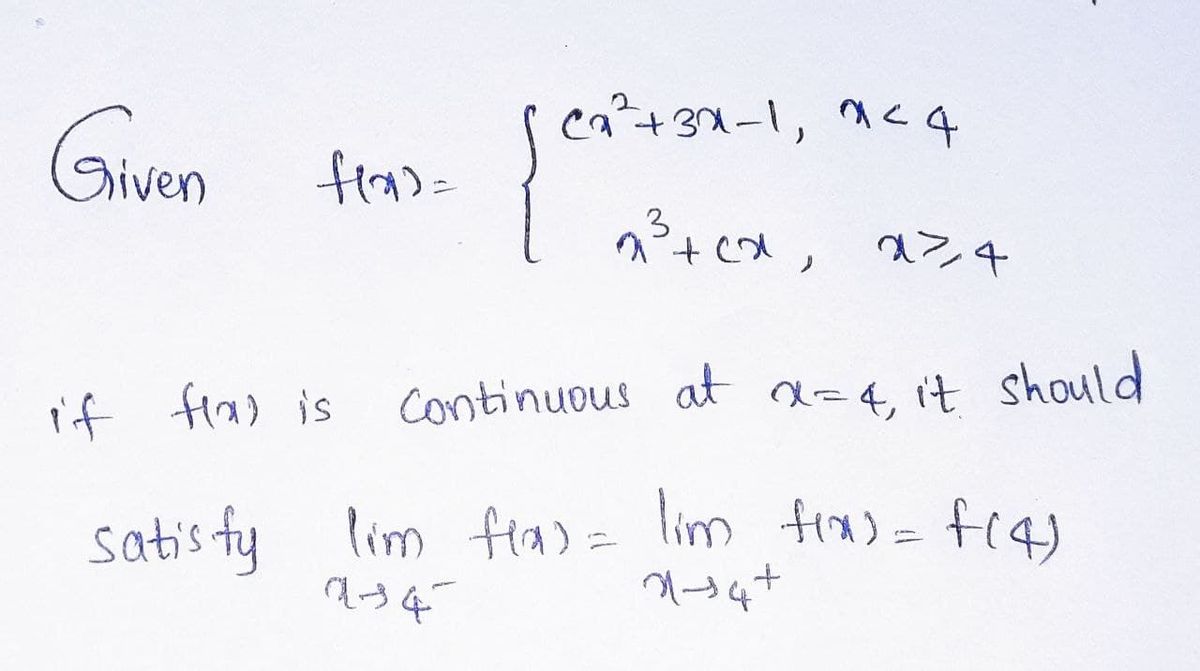 Given f(x) = { cx²+3x-1, x < 4
x³ + cx, x ≥ 4
if f(x) is continuous at x=4, it should
satisfy lim f(x) = lim f(x) = f(4)
x→4⁻ x→4⁺